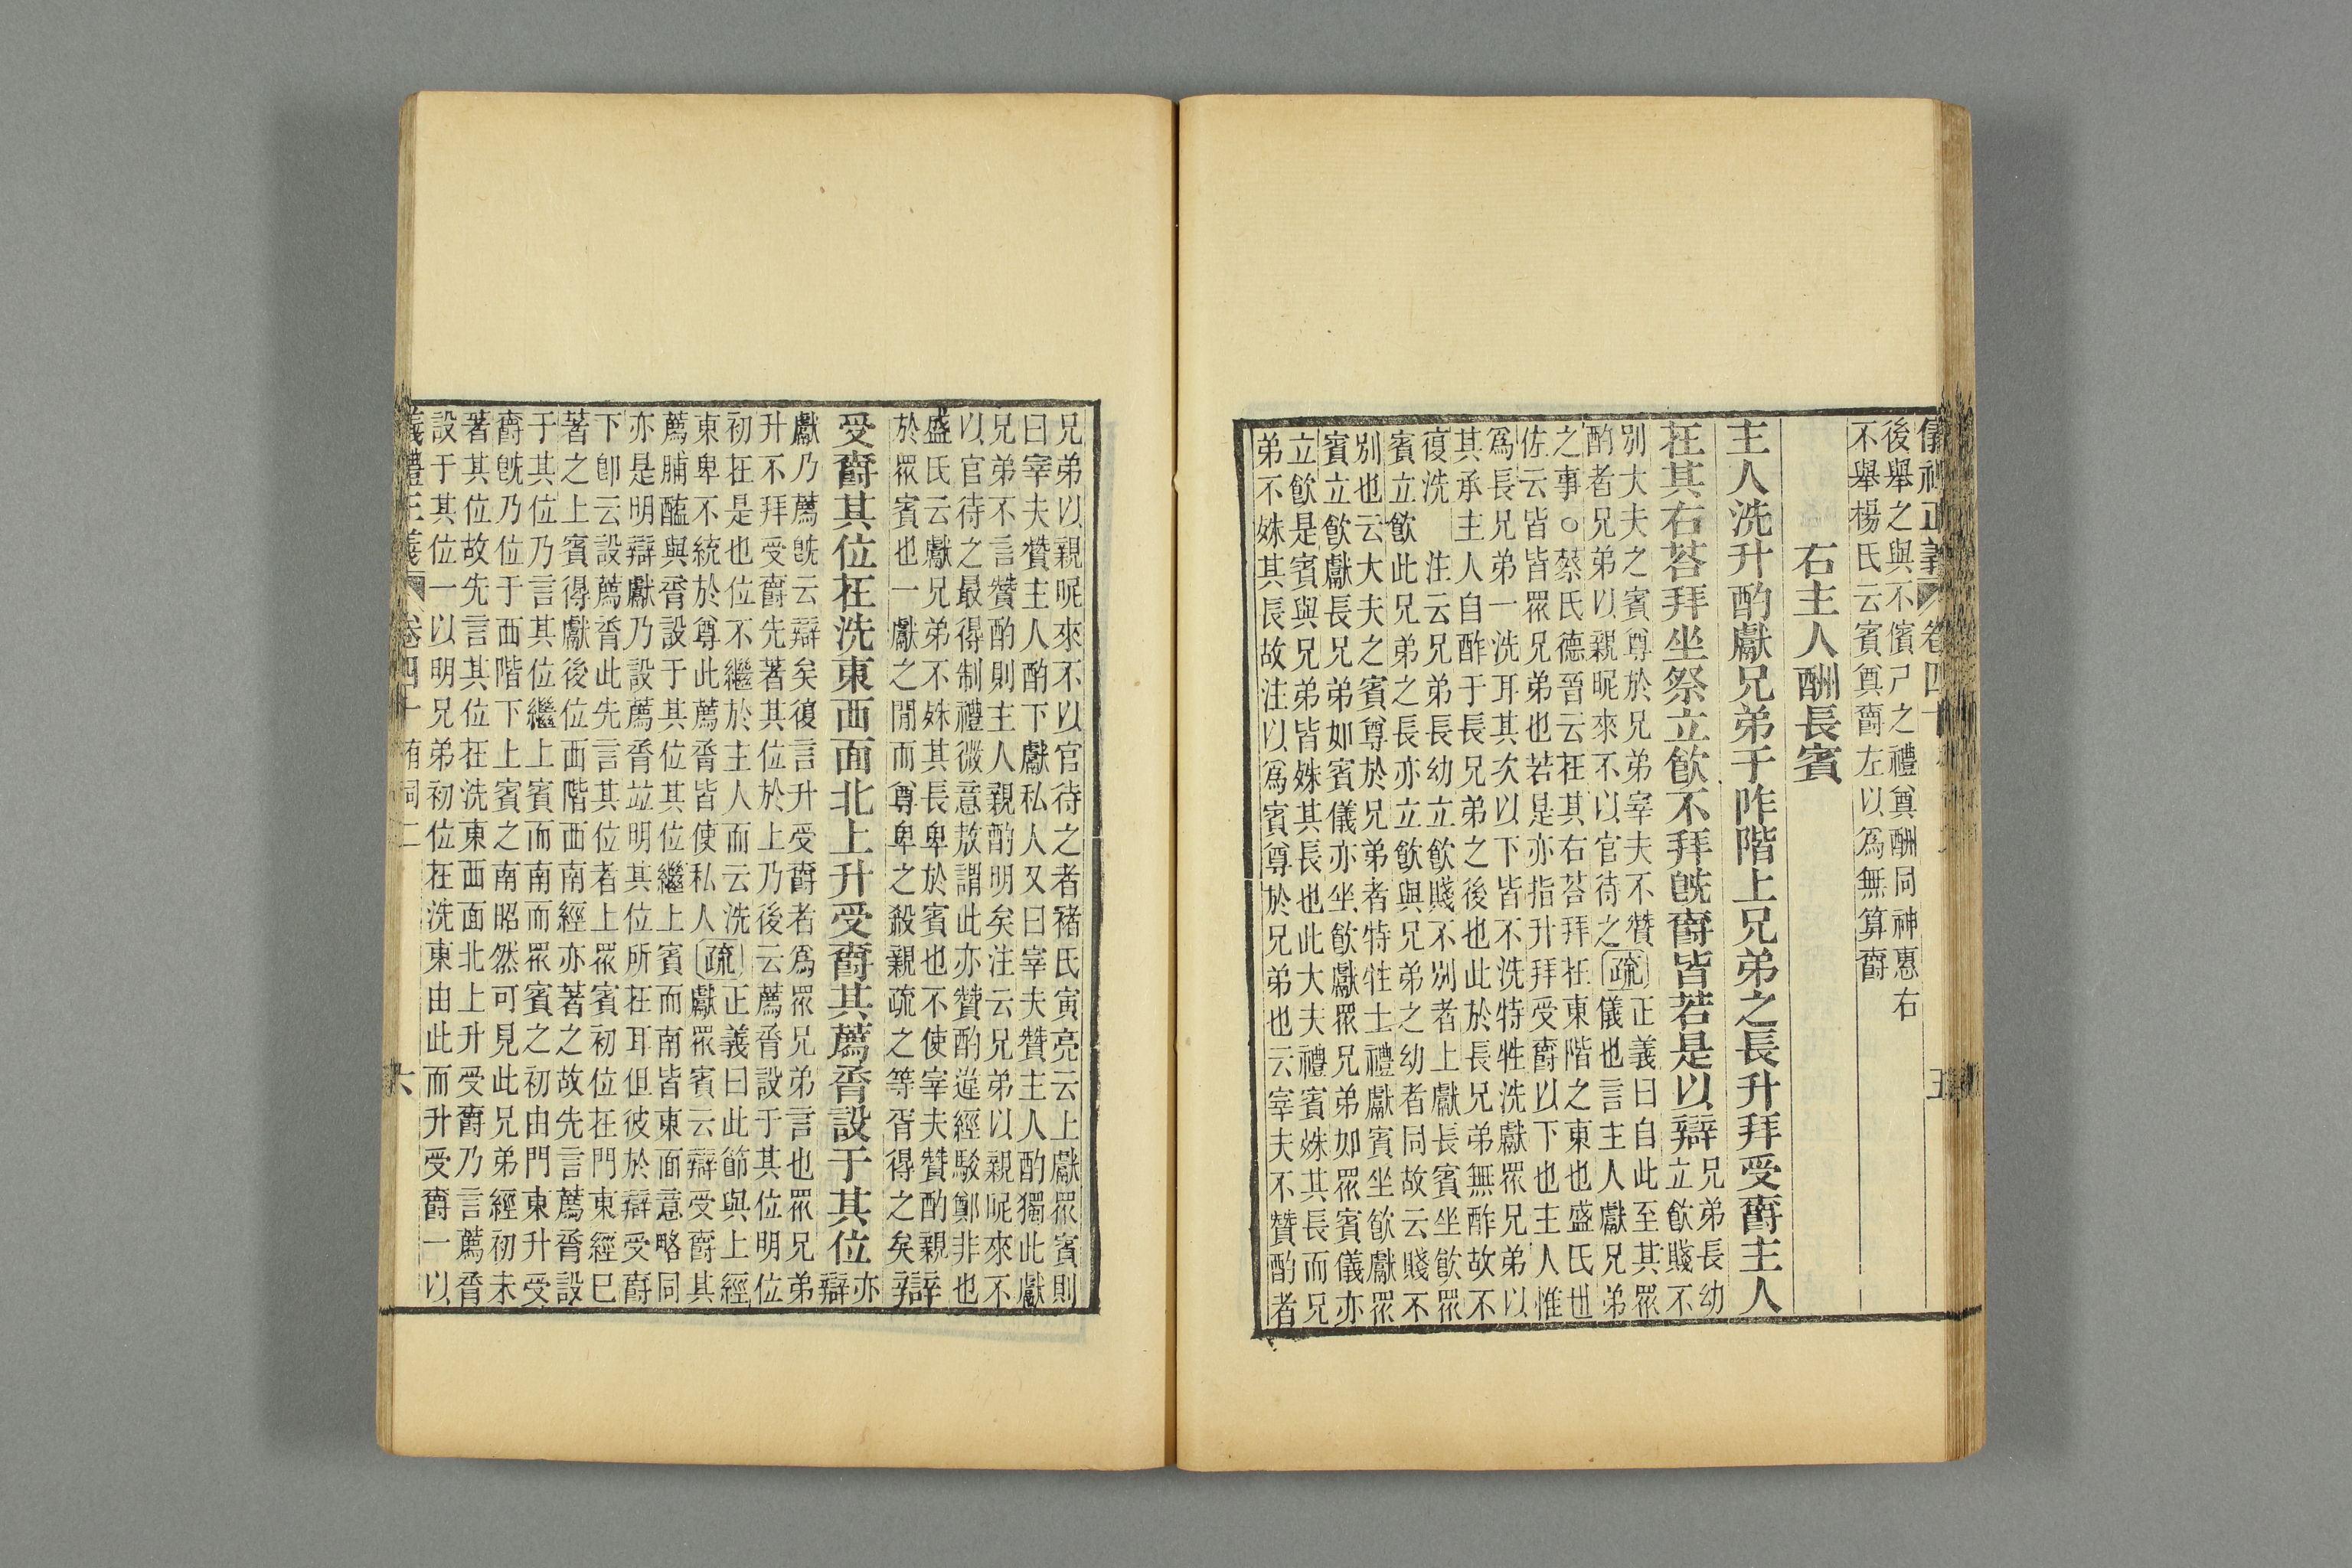 後舉之與不儐尸之禮奠酬同神惠右
不舉楊氏云賓奠爵左以爲無算爵
右主人酬長賓
主人洗升酌獻兄弟于阼階上兄弟之長升拜受爵主人
在其右荅拜坐祭立飮不拜旣爵皆若是以辯
兄弟長幼
立飮賤不
別大夫之賓尊於兄弟宰夫不贊
酌者兄弟以親昵來不以官待之
疏
正義曰自此至其衆
儀也言主人獻兄弟
之事○蔡氏德晉云在其右荅拜在東階之東也盛氏世
佐云皆皆衆兄弟也若是亦指升拜受爵以下也主人惟
爲長兄弟一洗耳其次以下皆不洗特牲洗獻衆兄弟以
其承主人自酢于長兄弟之後也此於長兄弟無酢故不
復洗 注云兄弟長幼立飮賤不別者上獻長賓坐飮衆
賓立飮此兄弟之長亦立飮與兄弟之幼者同故云賤不
別也云大夫之賓尊於兄弟者特牲士禮獻賓坐飮獻衆
賓立飮獻長兄弟如賓儀亦坐飮獻衆兄弟如衆賓儀亦
立飮是賓與兄弟皆殊其長也此大夫禮賓殊其長而兄
弟不殊其長故注以爲賓尊於兄弟也云宰夫不贊酌者
兄弟以親昵來不以官待之者褚氏寅亮云上獻衆賓則
曰宰夫贊主人酌下獻私人又曰宰夫贊主人酌獨此獻
兄弟不言贊酌則主人親酌明矣注云兄弟以親昵來不
以官待之最得制禮微意敖謂此亦贊酌違經駁鄭非也
盛氏云獻兄弟不殊其長卑於賓也不使宰夫贊酌親辯
於衆賓也一獻之閒而尊卑之殺親疏之等胥得之矣辯
受爵其位在洗東西面北上升受爵其薦脀設于其位
亦
辯
獻乃薦旣云辯矣復言升受爵者爲衆兄弟言也衆兄弟
升不拜受爵先著其位於上乃後云薦脀設于其位明位
初在是也位不繼於主人而云洗
東卑不統於尊此薦脀皆使私人
疏
正義曰此節與上經
獻衆賓云辯受爵其
薦脯醢與脀設于其位其位繼上賓而南皆東面意略同
亦是明辯獻乃設薦脀竝明其位所在耳但彼於辯受爵
下卽云設薦脀此先言其位者上衆賓初位在門東經已
著之上賓得獻後位西階西南經亦著之故先言薦脀設
于其位乃言其位繼上賓而南而衆賓之初由門東升受
爵旣乃位于西階下上賓之南昭然可見此兄弟經初未
著其位故先言其位在洗東西面北上升受爵乃言薦脀
設于其位一以明兄弟初位在洗東由此而升受爵一以